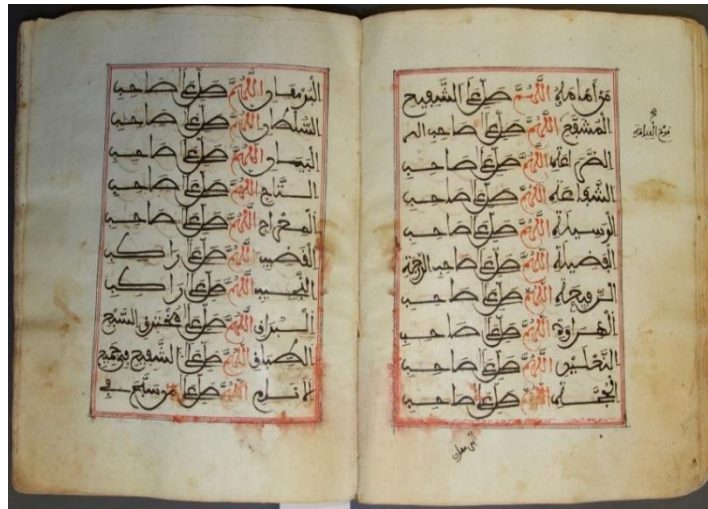 من امامه اللهم صل على الشفيع
المشفع اللهم صل على صاحب
يوم القيامة
الضراعة اللهم صل على صاحب
الشفاعة اللهم صل على صاحب
الوسيلة اللهم صل على صاحب
الفضيلة اللهم صل على صاحب الدرجة
الرفيعة اللهم صل على صاحب
الهراوة اللهم صل على صاحب
النعلين اللهم صل على صاحب
الحجة اللهم صل على صاحب
البرهان
البرهان اللهم صل على صاحب
السلطان اللهم صل على صاحب
البيان اللهم صل على صاحب
التاج اللهم صل على صاحب
المعراج اللهم صل على صاحب
القضيب اللهم صل على راكب
النجيب اللهم صل على راكب
البراق اللهم صل على مخترق السبع
الطباق اللهم صل على الشفيع في جميع
الانام اللهم صل على من سبح في